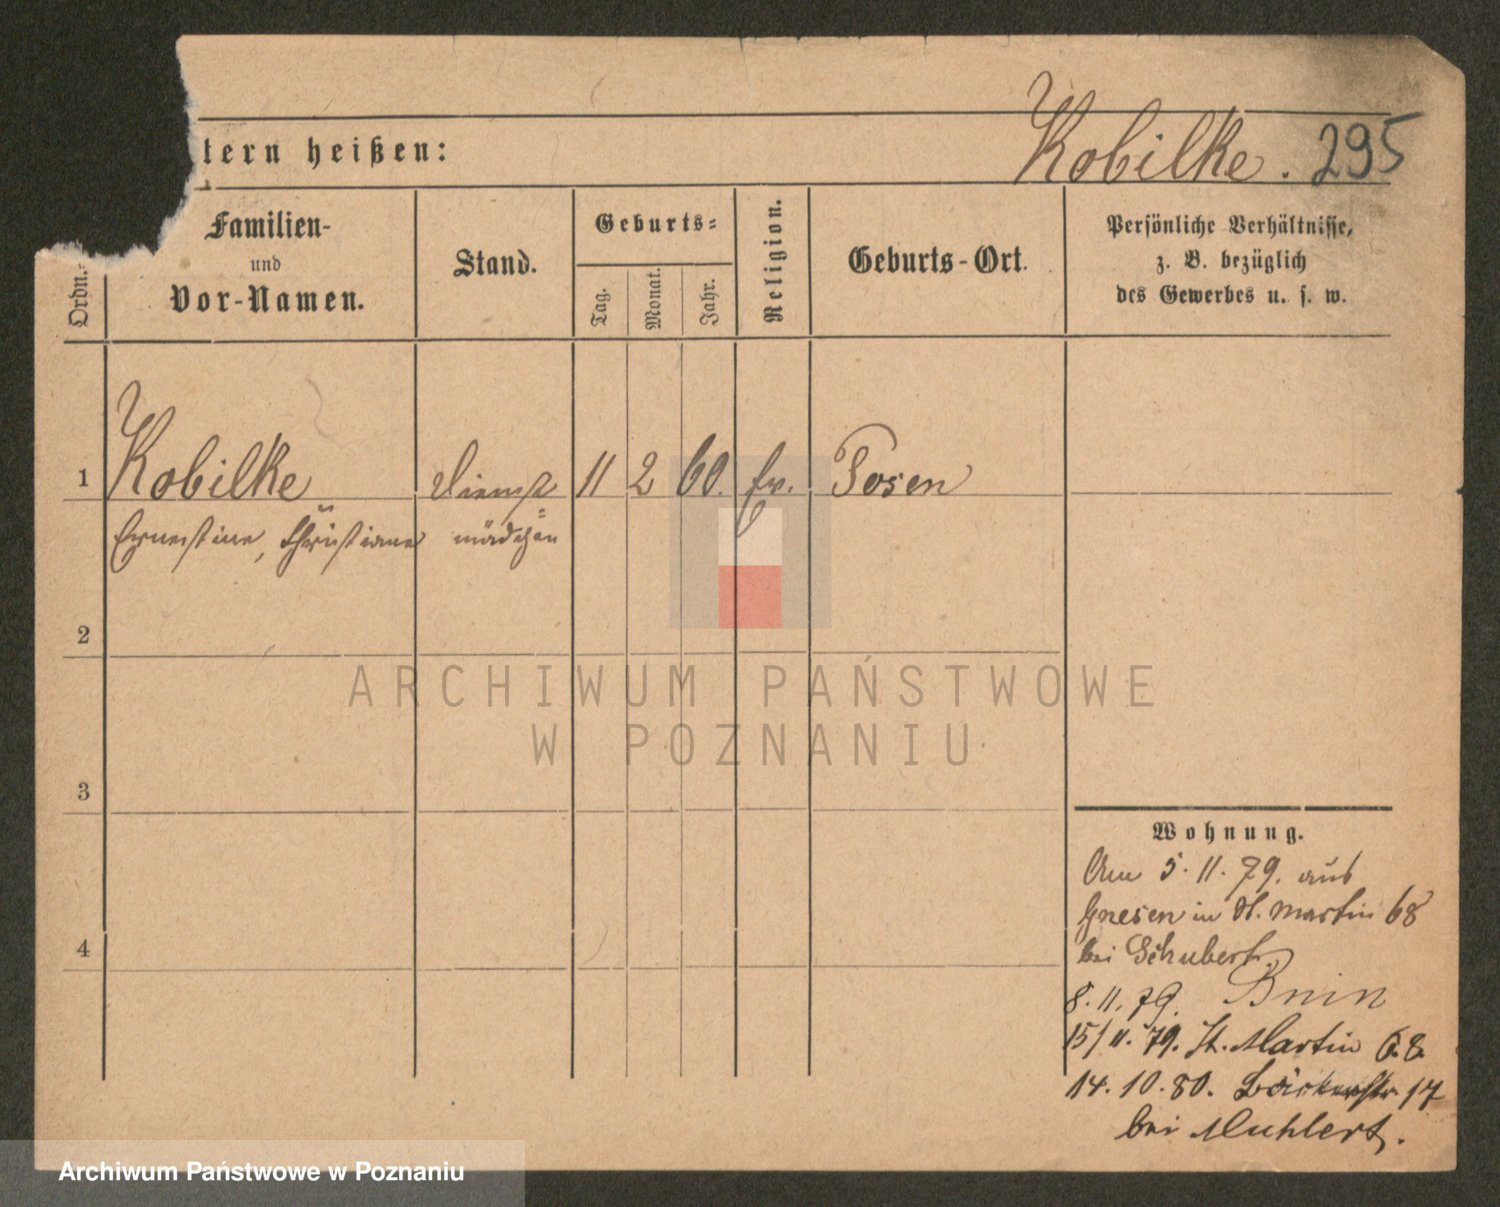 Kobilke. 295
tern heißen:
Ordn.-
Familien-
und
Vor-Namen.
Stand.
Geburts-
Tag.
Monat.
Jahr.
Religion.
Geburts-Ort.
Persönliche Verhältnisse,
z. B. bezüglich
des Gewerbes u. s. w.
1 Kobilke Dienst 11 2 60. ev. Posen
Ernestine, Christiane mädchen
2
3
4
Wohnung.
Am 5.11.79. aus
Gnesen in St. Martin 68
bei Schubert.
8.11.79. Bnin
15/11.79. St. Martin 68
14.10.80. Bäckerstr 17
bei Muhlert.
ARCHIWUM PAŃSTWOWE
W POZNANIU
Archiwum Państwowe w Poznaniu